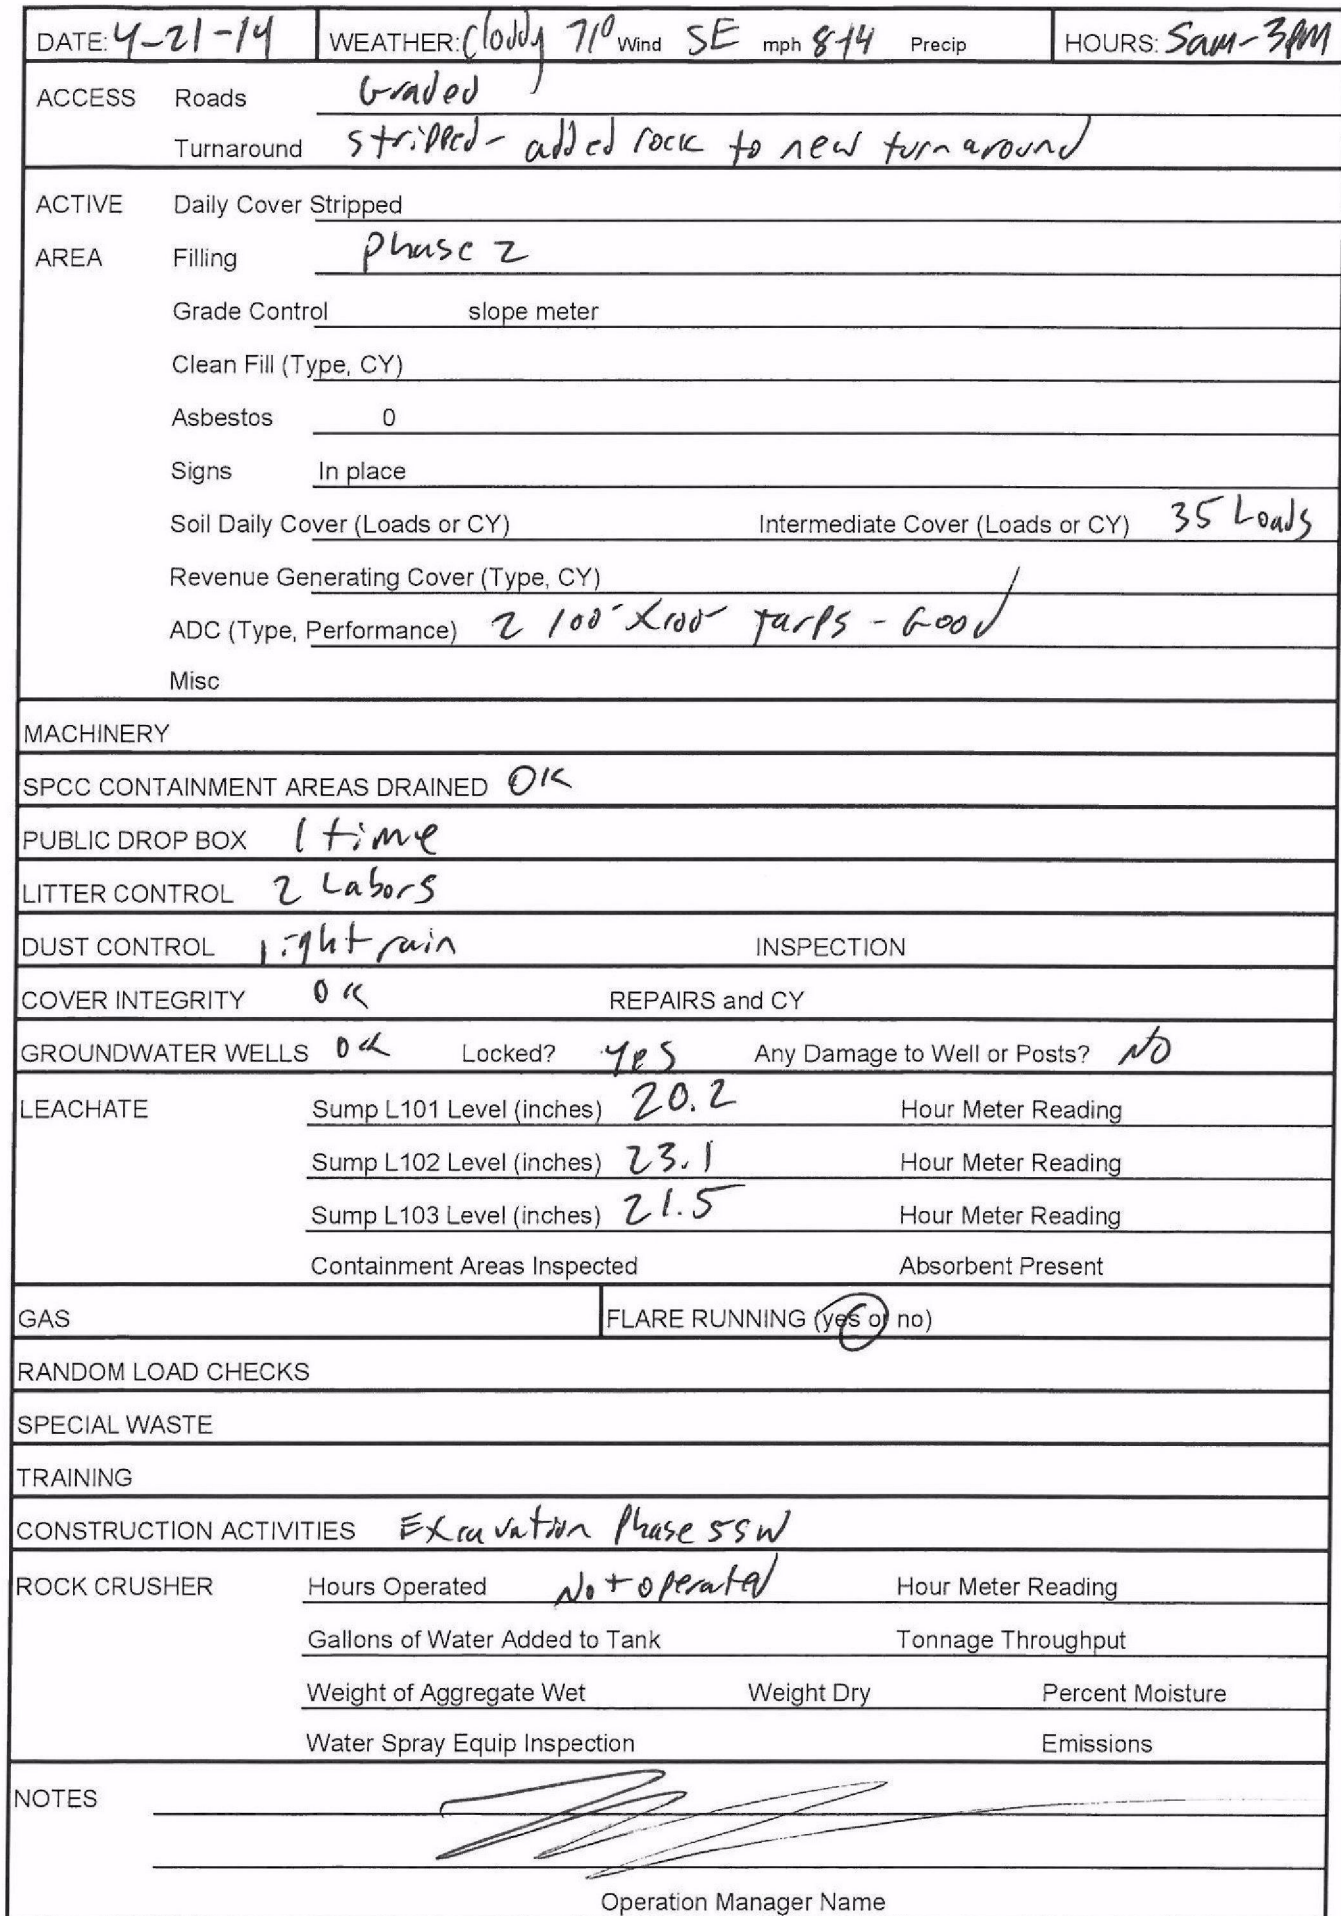 DATE: 4-21-14 WEATHER: Cloddy 71° Wind SE mph 8-14 Precip HOURS: 5am-3PM
ACCESS Roads Graded
Turnaround stripped - added rock to new turnaround
ACTIVE Daily Cover Stripped
AREA Filling phase 2
Grade Control slope meter
Clean Fill (Type, CY)
Asbestos 0
Signs In place
Soil Daily Cover (Loads or CY) Intermediate Cover (Loads or CY) 35 Loads
Revenue Generating Cover (Type, CY)
ADC (Type, Performance) 2 100' X 100' Tarps - Good
Misc
MACHINERY
SPCC CONTAINMENT AREAS DRAINED OK
PUBLIC DROP BOX 1 time
LITTER CONTROL 2 Labors
DUST CONTROL light rain INSPECTION
COVER INTEGRITY OK REPAIRS and CY
GROUNDWATER WELLS OK Locked? Yes Any Damage to Well or Posts? NO
LEACHATE Sump L101 Level (inches) 20.2 Hour Meter Reading
Sump L102 Level (inches) 23.1 Hour Meter Reading
Sump L103 Level (inches) 21.5 Hour Meter Reading
Containment Areas Inspected Absorbent Present
GAS FLARE RUNNING (yes or no)
RANDOM LOAD CHECKS
SPECIAL WASTE
TRAINING
CONSTRUCTION ACTIVITIES Excavation Phase 5SW
ROCK CRUSHER Hours Operated Not operated Hour Meter Reading
Gallons of Water Added to Tank Tonnage Throughput
Weight of Aggregate Wet Weight Dry Percent Moisture
Water Spray Equip Inspection Emissions
NOTES
Operation Manager Name